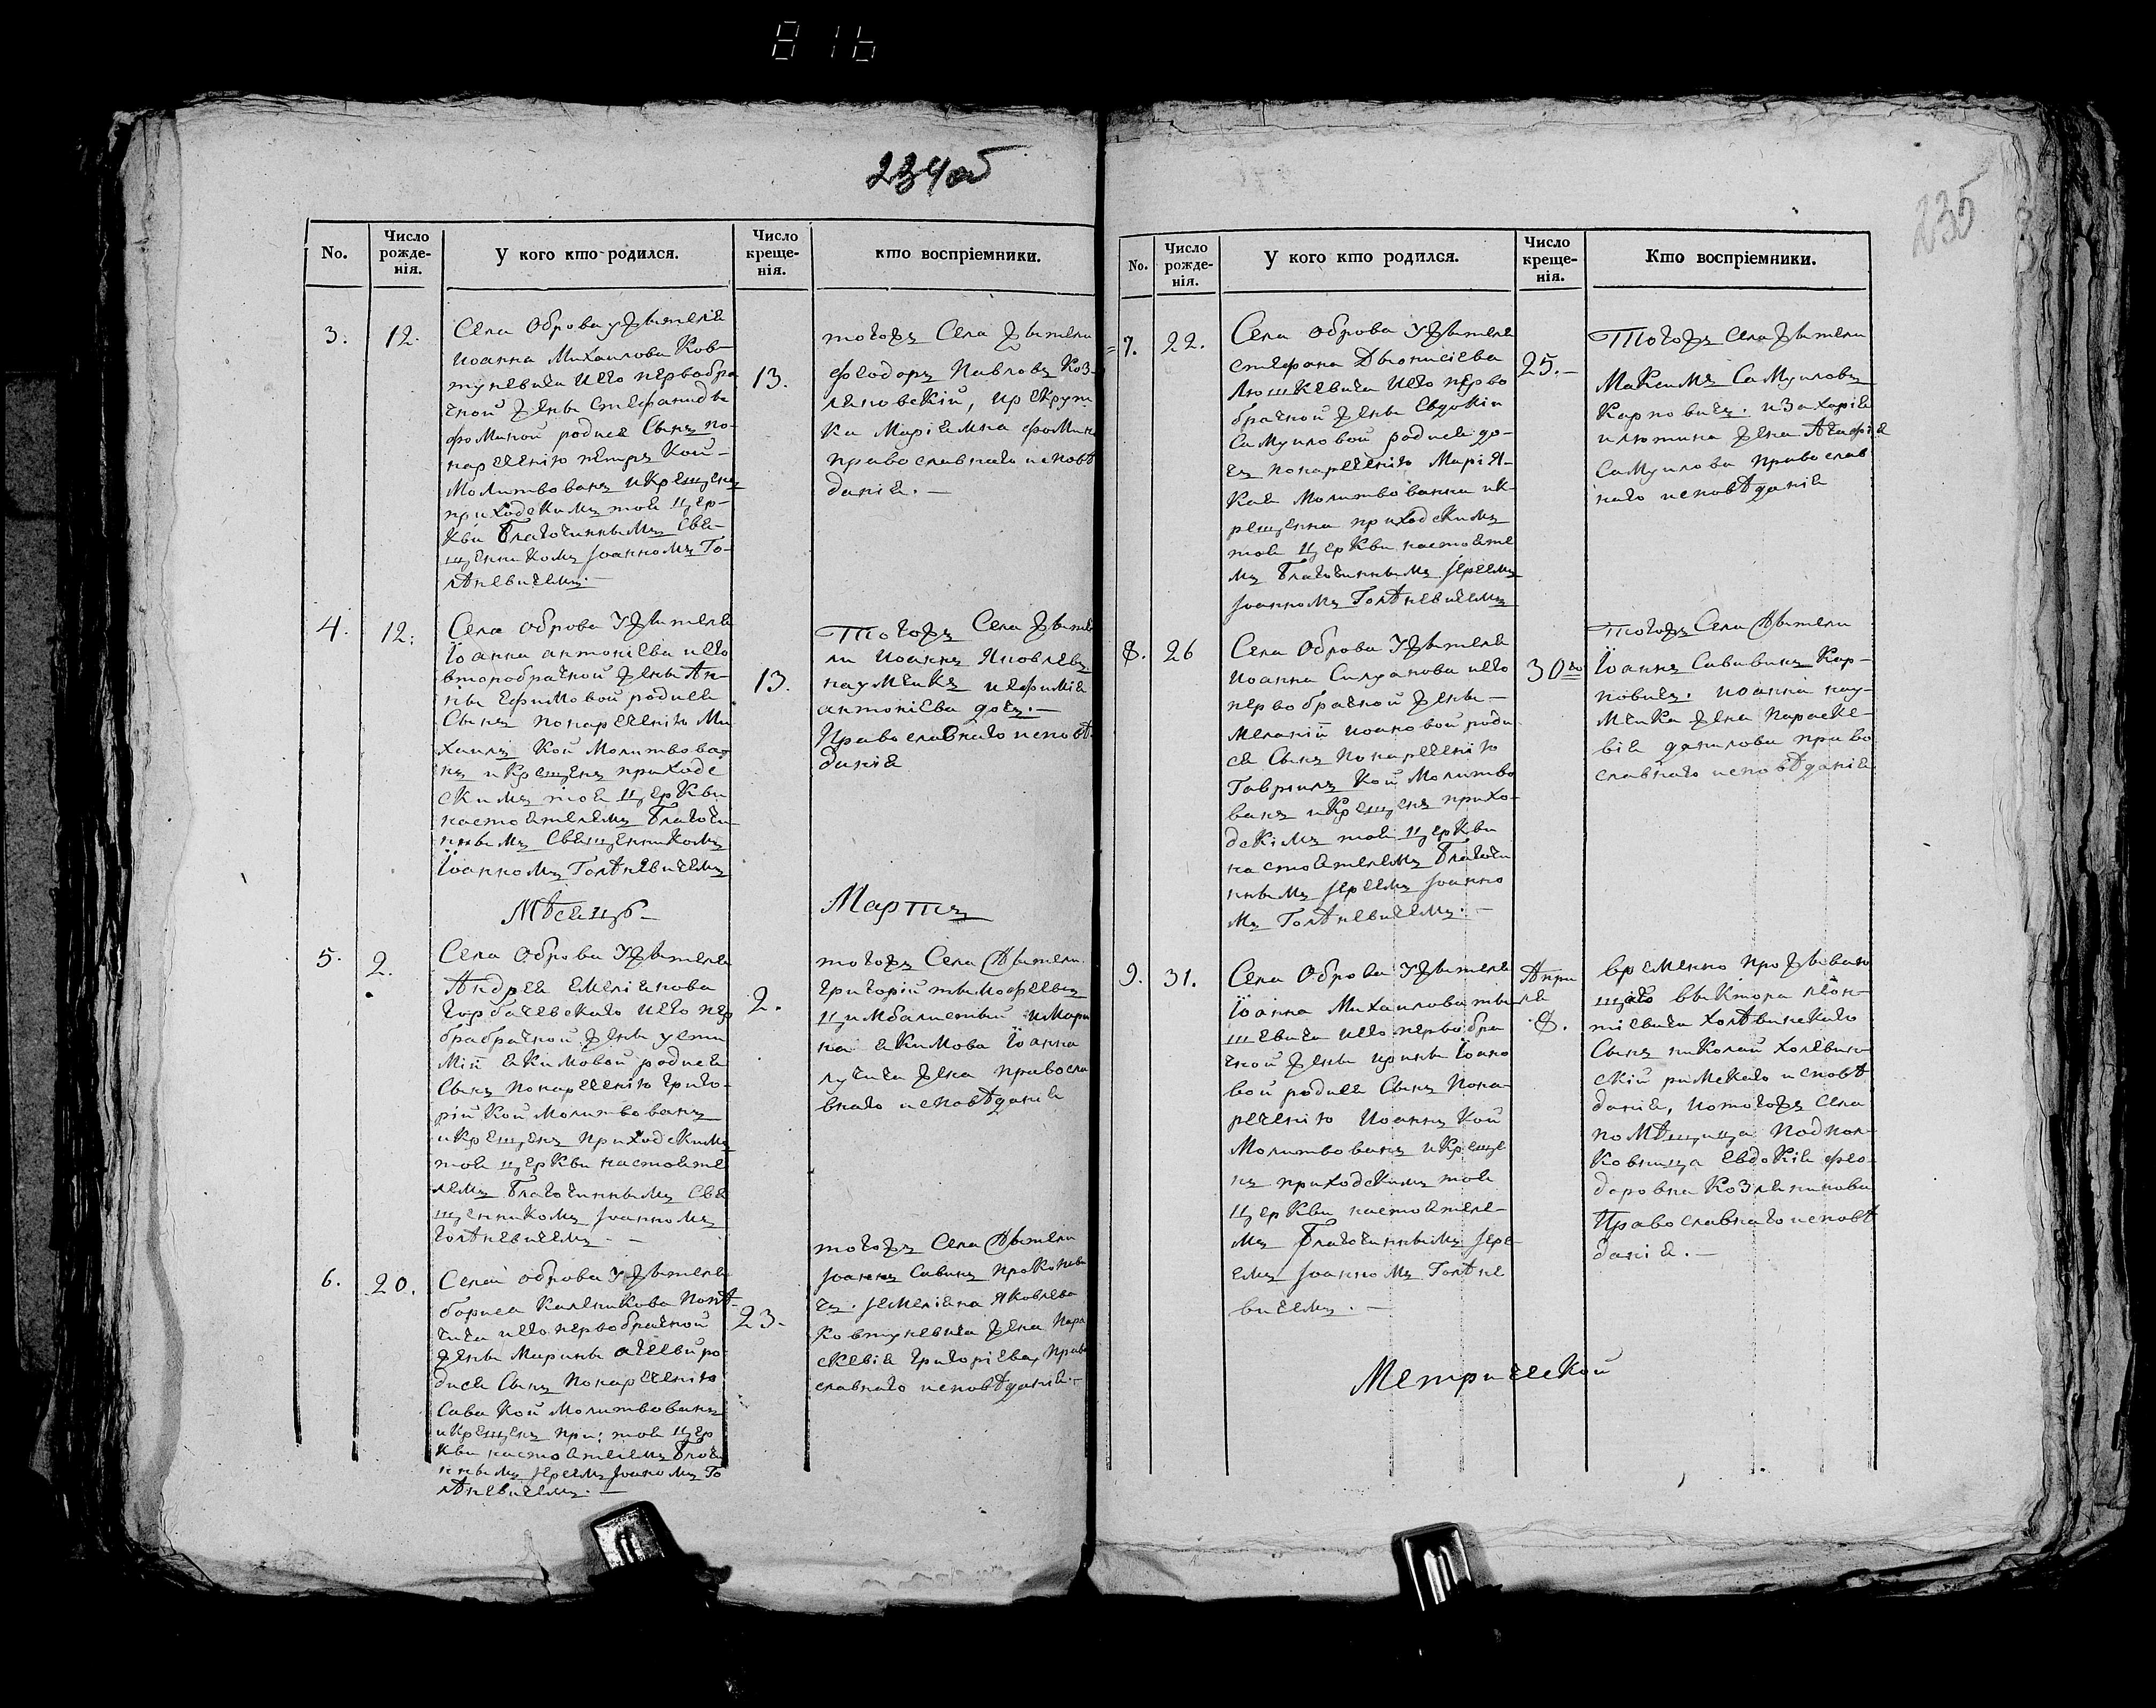 816
234об
No.
Число рожде-нія.
У кого кто родился.
Число креще-нія.
кто воспріемники.
3.
12.
Села Оброва у жытеля
Иоанна Михаилова Ков-
туневича и его первобра
чной жены Стефаниды
Фоминой родися Сынъ по-
наречению Петръ Кой-
Молитвованъ и Крещенъ
приходскимъ тоя цер-
кви Благочиннымъ Свя-
щенникомъ Іоанномъ Го-
лѣневичемъ. —
13.
тогожъ Села жытели
Феодоръ Павловъ Коз-
ляновскій, и рекрут
ка Маріямна Фомина
православнаго исповѣ
данія. —
4.
12.
Села Оброва У жытеля
Іоанна антоніева и его
второбрачной жены Ан-
ны Ефимовой родися
Сынъ понаречению Ми
хаилъ Кой Молитвова-
нъ и Крещенъ приход
скимъ тоя Церкви
настоятелемъ Благочи
ннымъ Священникомъ
Іоанномъ Голѣневичемъ
13.
Тогожъ Села жыте
ли Иоаннъ Яковлевъ
наумчикъ и ефимія
антоніева дочь. —
Православнаго исповѣ
данія
Мѣсяцъ —
Мартъ
5.
2.
Села Оброва У жытеля
Андрея Емеліянова
Горбачевскаго и его пер
брабрачной жены
Акимовой родися
Сынъ понаречению Григо-
рій Кой Молитвованъ
и Крещенъ Приходскимъ
тоя церкви настояте
лемъ Благочиннымъ Свя
щенникомъ Іоанномъ
Голѣневичемъ. —
2.
тогожъ Села Жытели
Григорій тымофеевъ
и Мари
на Акимова Іоанна
лучича жена правосла
внаго исповѣданія
6.
20.
Села Оброва У жытеля
бориса Каленикова
и его первобрачной
жены Марины ро
дися Сынъ Понаречению
Сава Кой Молитвованъ
и Крещенъ при: тоя Цер
кви настоятелемъ Благочи
ннымъ Іереемъ Іоаномъ Го
лѣневичемъ. —
23.
тогожъ Села Жытели
Іоаннъ Савинъ Прокопови
чъ. Іемеліана Яковлева
Ковтуневича жена Пара
скевія Григоріева, Право
славнаго исповѣданія. —
235
No.
Число рожде-нія.
У кого кто родился.
Число креще-нія.
Кто воспріемники.
7.
22.
Села Оброва У жытеля
стефана Дыонисіева
Люшкевича и его перво
брачной жены Евдокіи
Самуиловой родися до-
чъ понаречению Марія-
Кая Молитвованна и К-
рещенна приходскимъ
тоя Церкви настояте
мъ Благочиннымъ Іереемъ
Іоанномъ Голѣневичемъ
25. —
Тогожъ Села жытели
Максимъ Самуиловъ
Карповичъ. и Захарія
жена Агафія
Самуилова православ
наго исповѣданія
8.
26
Села Оброва У жытеля
Иоанна Силуанова и его
первобрачной жены —
Меланіи Иоановой роди
ся Сынъ Понаречению
Гавріилъ Кой Молитво
ванъ и Крещенъ прихо-
дскімъ тоя церкви
настоятелемъ Благочи
ннымъ Іереемъ Іоанно
мъ Голѣневичемъ. —
30го
тогожъ Села Жытели
Іоаннъ Кар-
повичъ. Иоанна нау-
мчика жена Параске-
вія данилова право
славнаго исповѣданія
9.
31.
Села Оброва У жытеля
Іоанна Михаилова ты-
шевича и его первобра
чной жены ирины Іоано
вой родися Сынъ Пона-
речению Иоаннъ Кой
Молитвованъ и Креще
нъ приходскимъ тоя
Церкви настоятеле-
мъ Благочиннымъ Іере-
емъ Іоанномъ Голѣне
вичемъ. —
Апри
ля
8.
временно прожываю
щаго выктора леон-
тіевича Холѣвинскаго
Сынъ николай холевин-
скій римскаго исповѣ
данія, и тогожъ Села
помѣщица Подпол-
ковница Евдокія Фео-
доровна Козляинова
Православнаго исповѣ
данія. —
Метрической